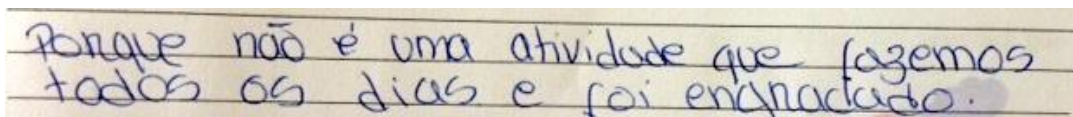 Porque não é uma atividade que fazemos
todos os dias e foi engraçado.